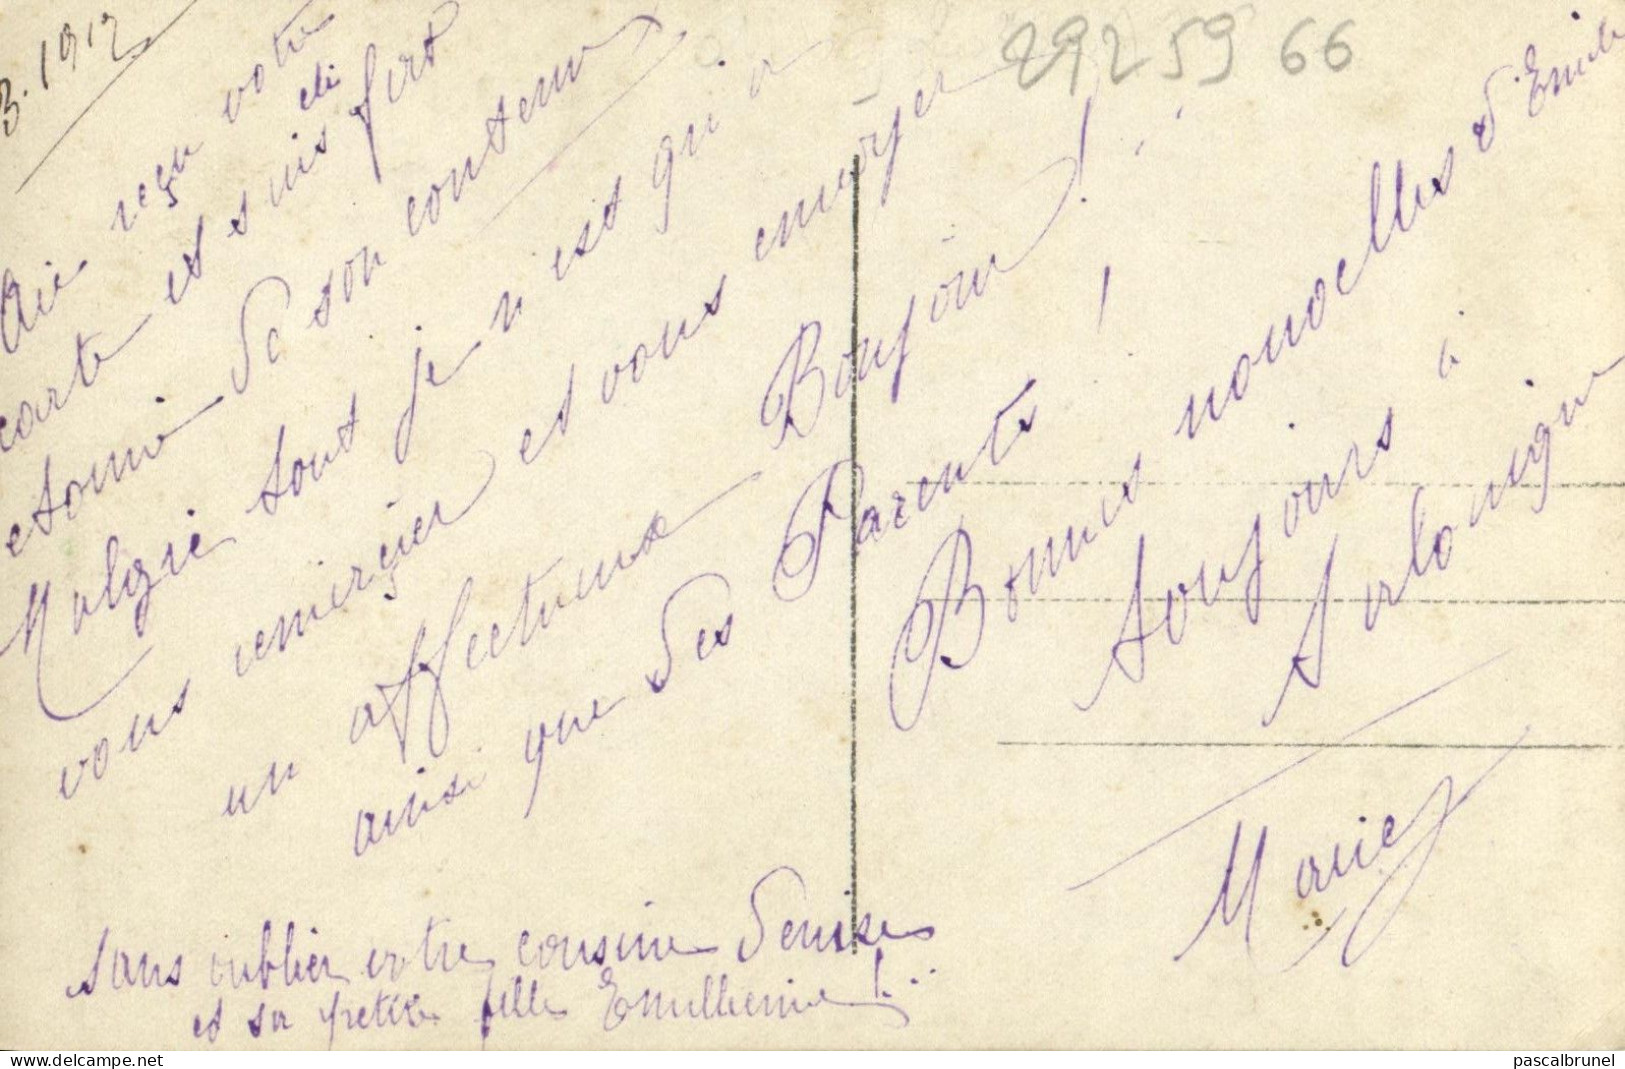 3.1912
292 59 66
Ai reçu votre
carte et suis fort
été
etonné de son contenu
Malgré tout je n'est qu'a
vous remerçier et vous envoyer
un affectueux Bonjour! ..
ainsi que des Parents !
Bonnes nouvelles d'Emile
toujours à
Marie
sans oublier votre cousine Denise
et sa petite fille Emilienne !..
delcampe.net
pascalbrunel